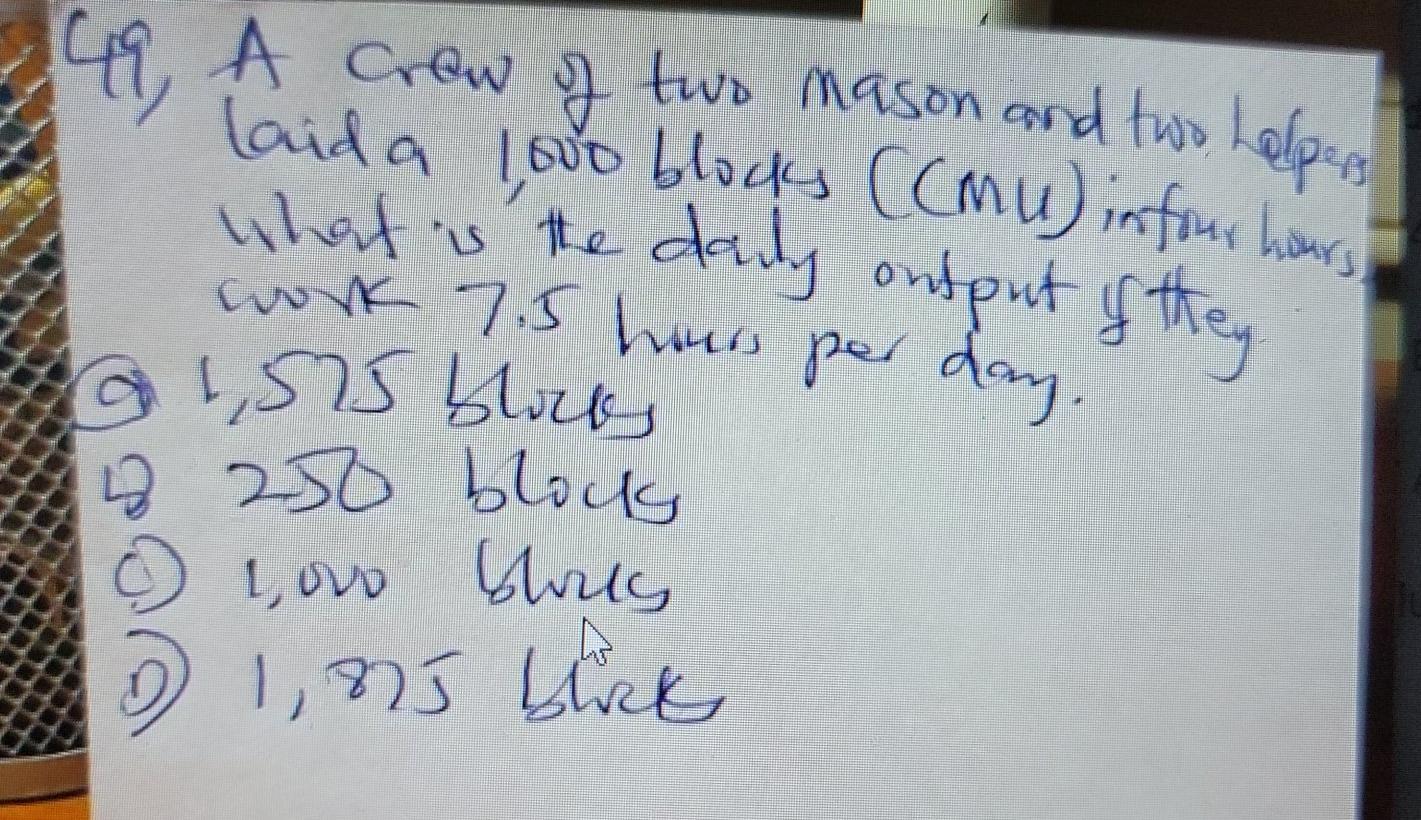 49, A crew of two mason and two helpers
laid a 1,000 blocks (CMU) in four hours,
what is the daily output if they
work 7.5 hours per day.
a 1,575 blocks
b 250 blocks
c) 1,000 blocks
D) 1,875 block